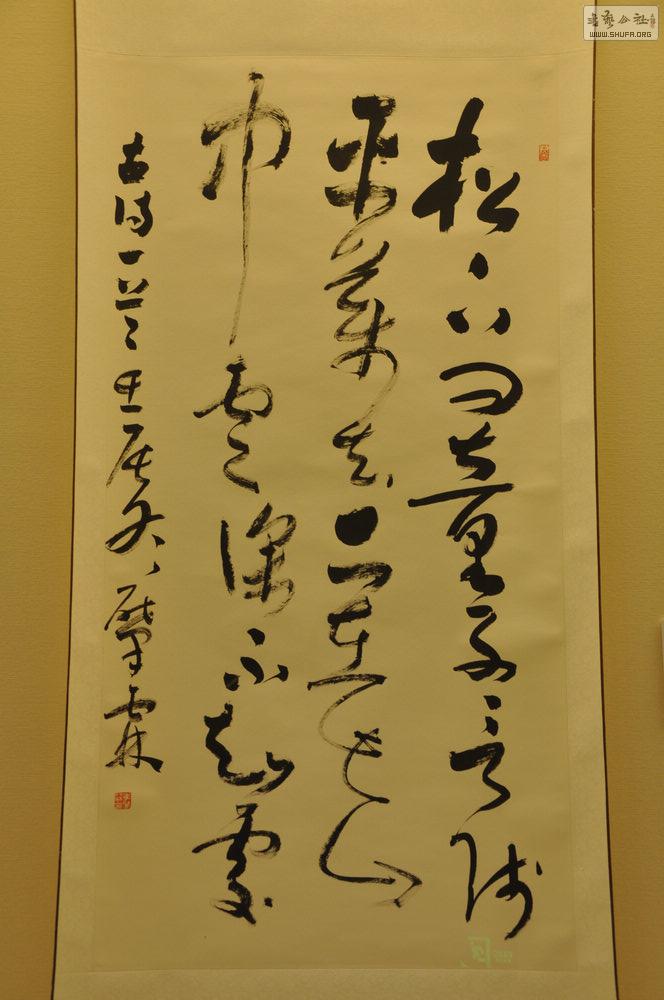 松下問童子言師
采藥去只在此山
中雲深不知處
古詩一首壬辰冬肇霖
書藝公社
WWW.SHUFA.ORG